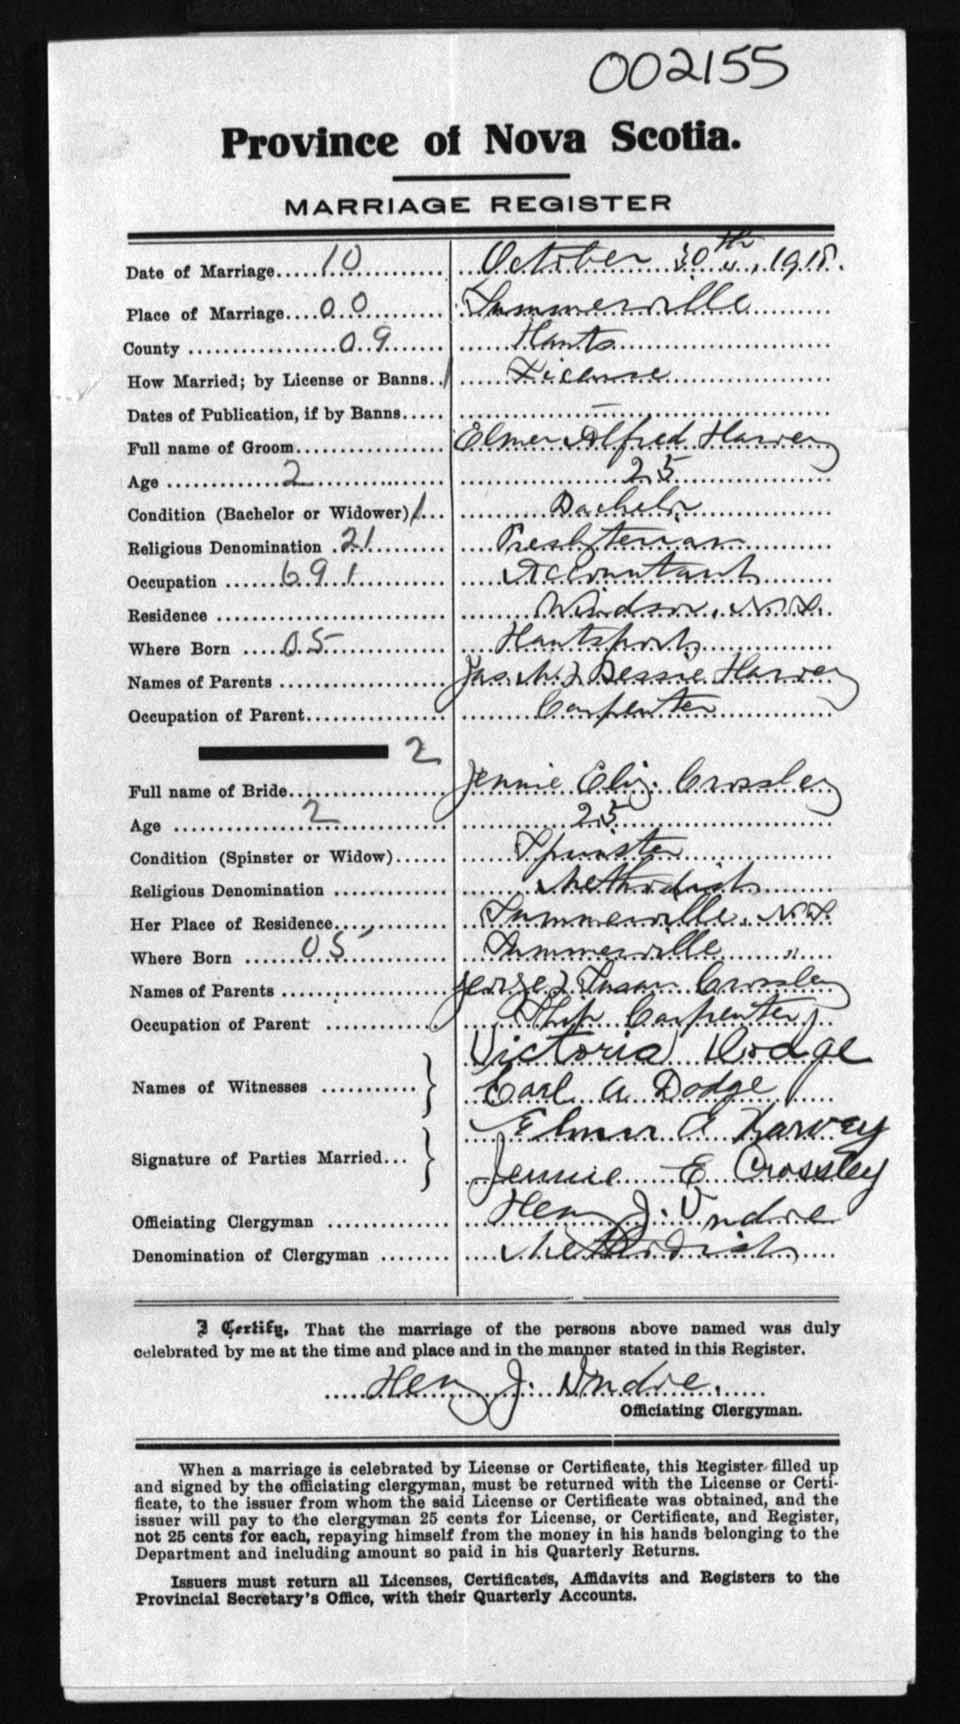 002155
Province of Nova Scotia.
MARRIAGE REGISTER
Date of Marriage..... 10 October 30th, 1918.
Place of Marriage.... 00 Summerville
County .................. 09 Hants
How Married; by License or Banns.. 1 License
Dates of Publication, if by Banns..... —
Full name of Groom................. Elmer Alfred Harvey
Age ............ 2 25
Condition (Bachelor or Widower) 1... Bachelor
Religious Denomination . 21 Presbyterian
Occupation ...... 691 Accountant
Residence ............................ Windsor, N.S.
Where Born ..... 05 Hantsport
Names of Parents .................... Jas. W. & Bessie Harvey
Occupation of Parent................. Carpenter
2
Full name of Bride................... Jennie Eliz. Crossley
Age ............ 2 25
Condition (Spinster or Widow)...... Spinster
Religious Denomination .............. Methodist
Her Place of Residence.............. Summerville, N.S.
Where Born ........ 05 Summerville "
Names of Parents .................... George & Susan Crossley
Occupation of Parent ............... Ship Carpenter
Names of Witnesses ........... } Victoria Dodge
Carl A Dodge
Signature of Parties Married... } Elmer A Harvey
Jennie E Crossley
Officiating Clergyman ............... Henry J. Indoe
Denomination of Clergyman ........ Methodist
I Certify, That the marriage of the persons above named was duly
celebrated by me at the time and place and in the manner stated in this Register.
Henry J. Indoe.
Officiating Clergyman.
When a marriage is celebrated by License or Certificate, this Register filled up
and signed by the officiating clergyman, must be returned with the License or Certi-
ficate, to the issuer from whom the said License or Certificate was obtained, and the
issuer will pay to the clergyman 25 cents for License, or Certificate, and Register,
not 25 cents for each, repaying himself from the money in his hands belonging to the
Department and including amount so paid in his Quarterly Returns.
Issuers must return all Licenses, Certificates, Affidavits and Registers to the
Provincial Secretary's Office, with their Quarterly Accounts.